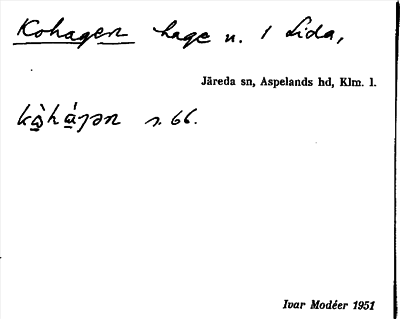 Kohagen hage u. 1 Lida,
Järeda sn, Aspelands hd, Klm. l.
kòhágən s. 66.
Ivar Modéer 1951